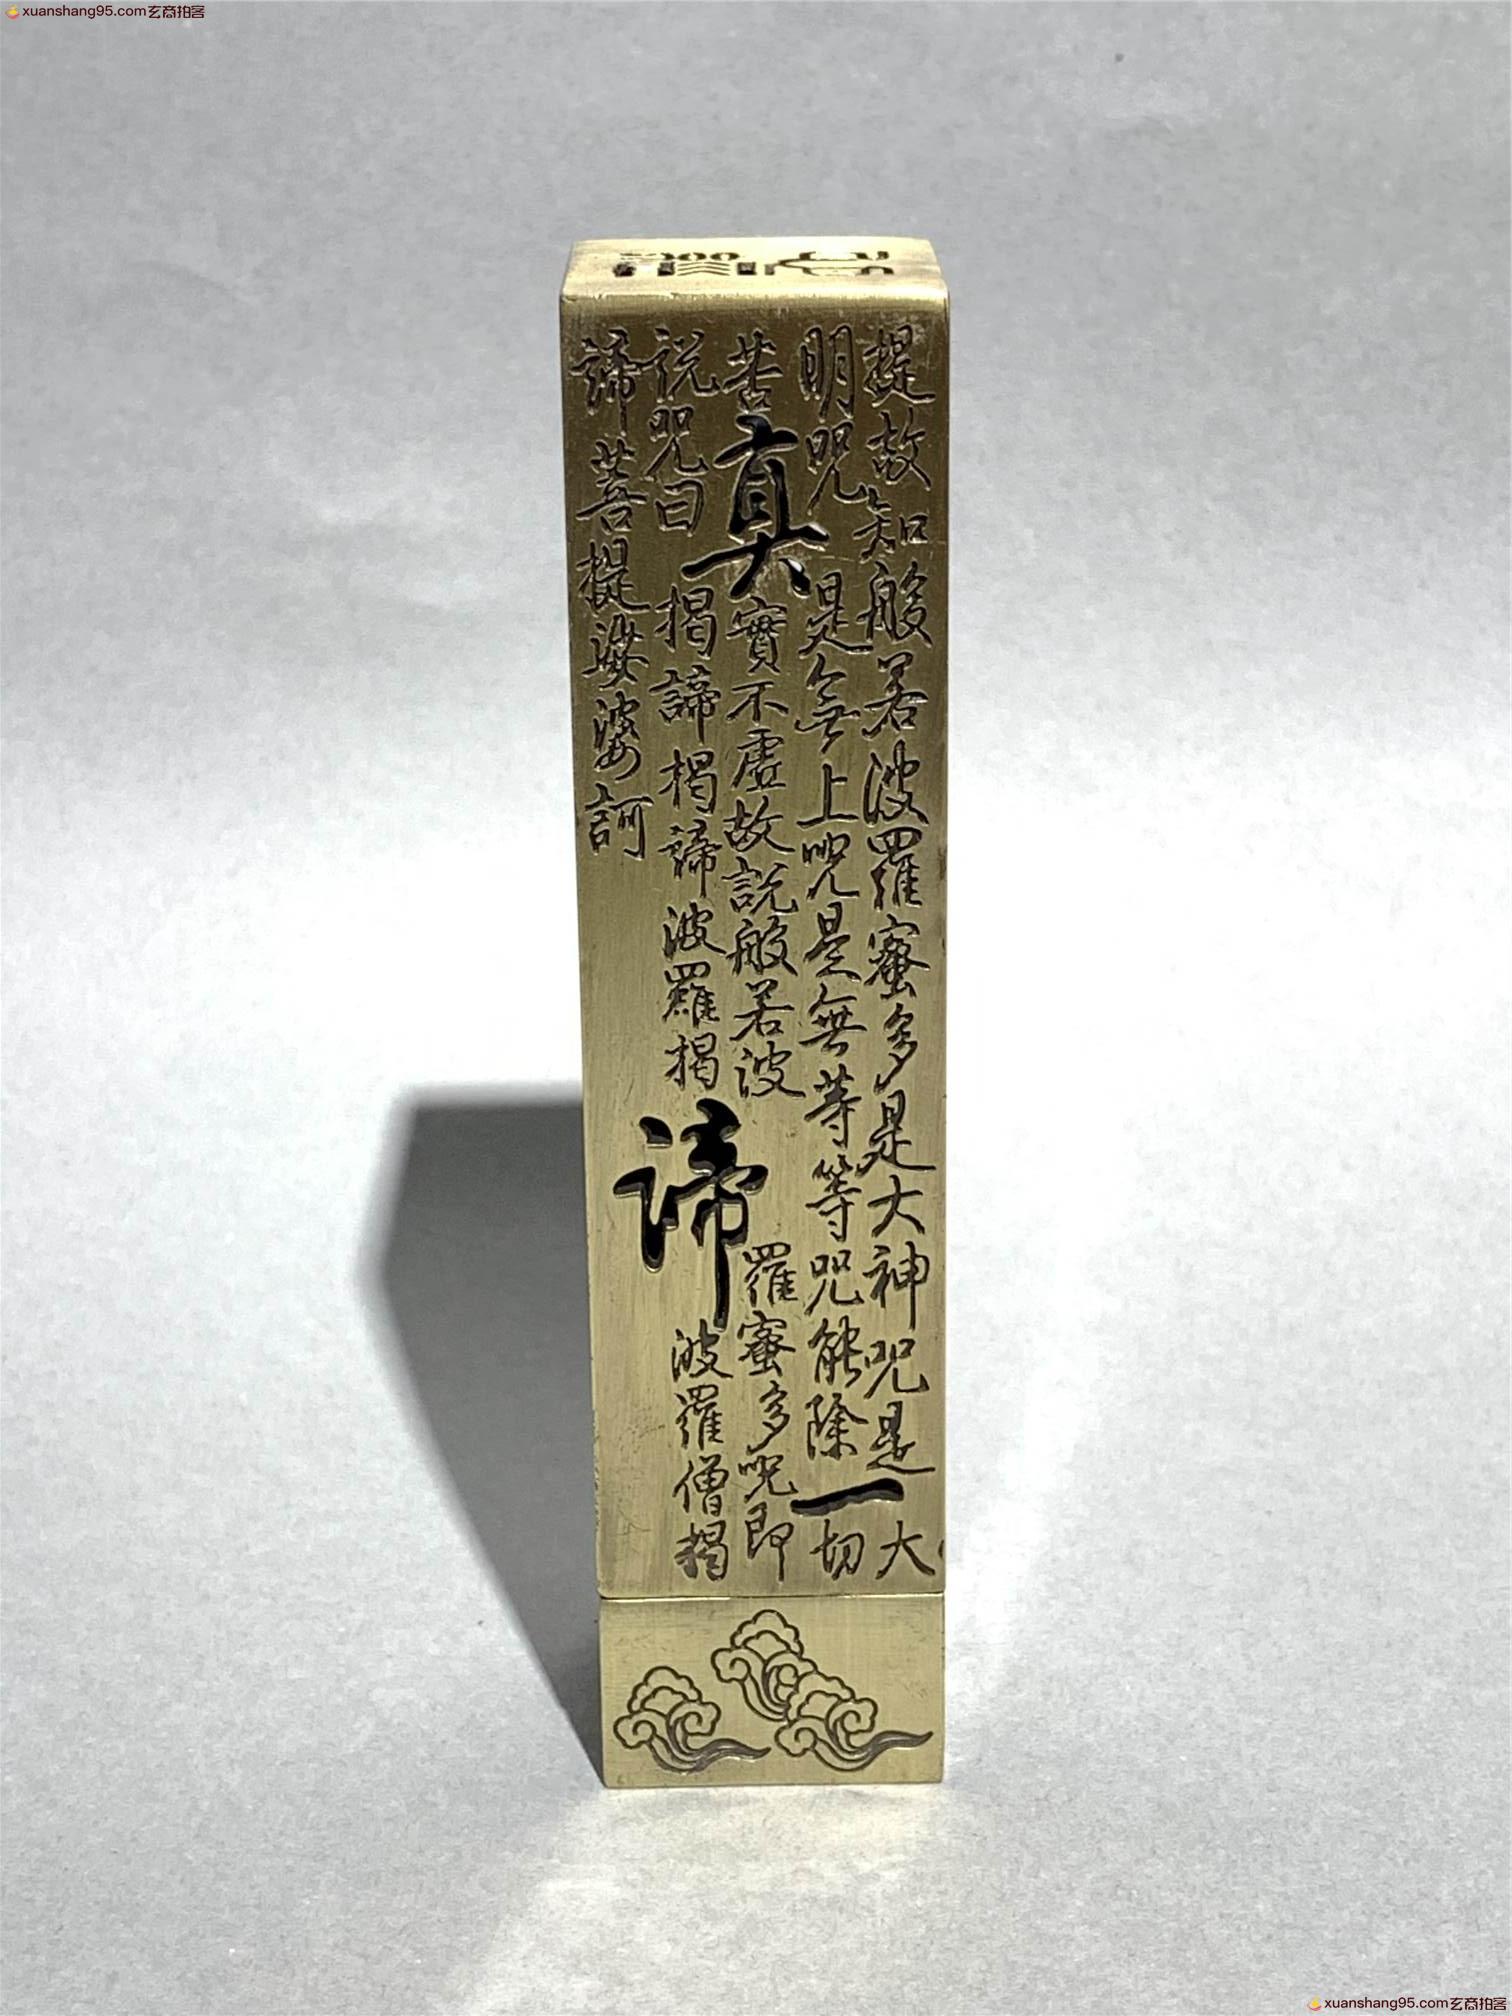 xuanshang95.com玄商拍客
提故知般若波羅蜜多是大神咒是大
明咒是無上咒是無等等咒能除一切
苦真實不虛故說般若波羅蜜多咒即
說咒曰揭諦揭諦波羅揭諦波羅僧揭
諦菩提娑婆訶
xuanshang95.com玄商拍客